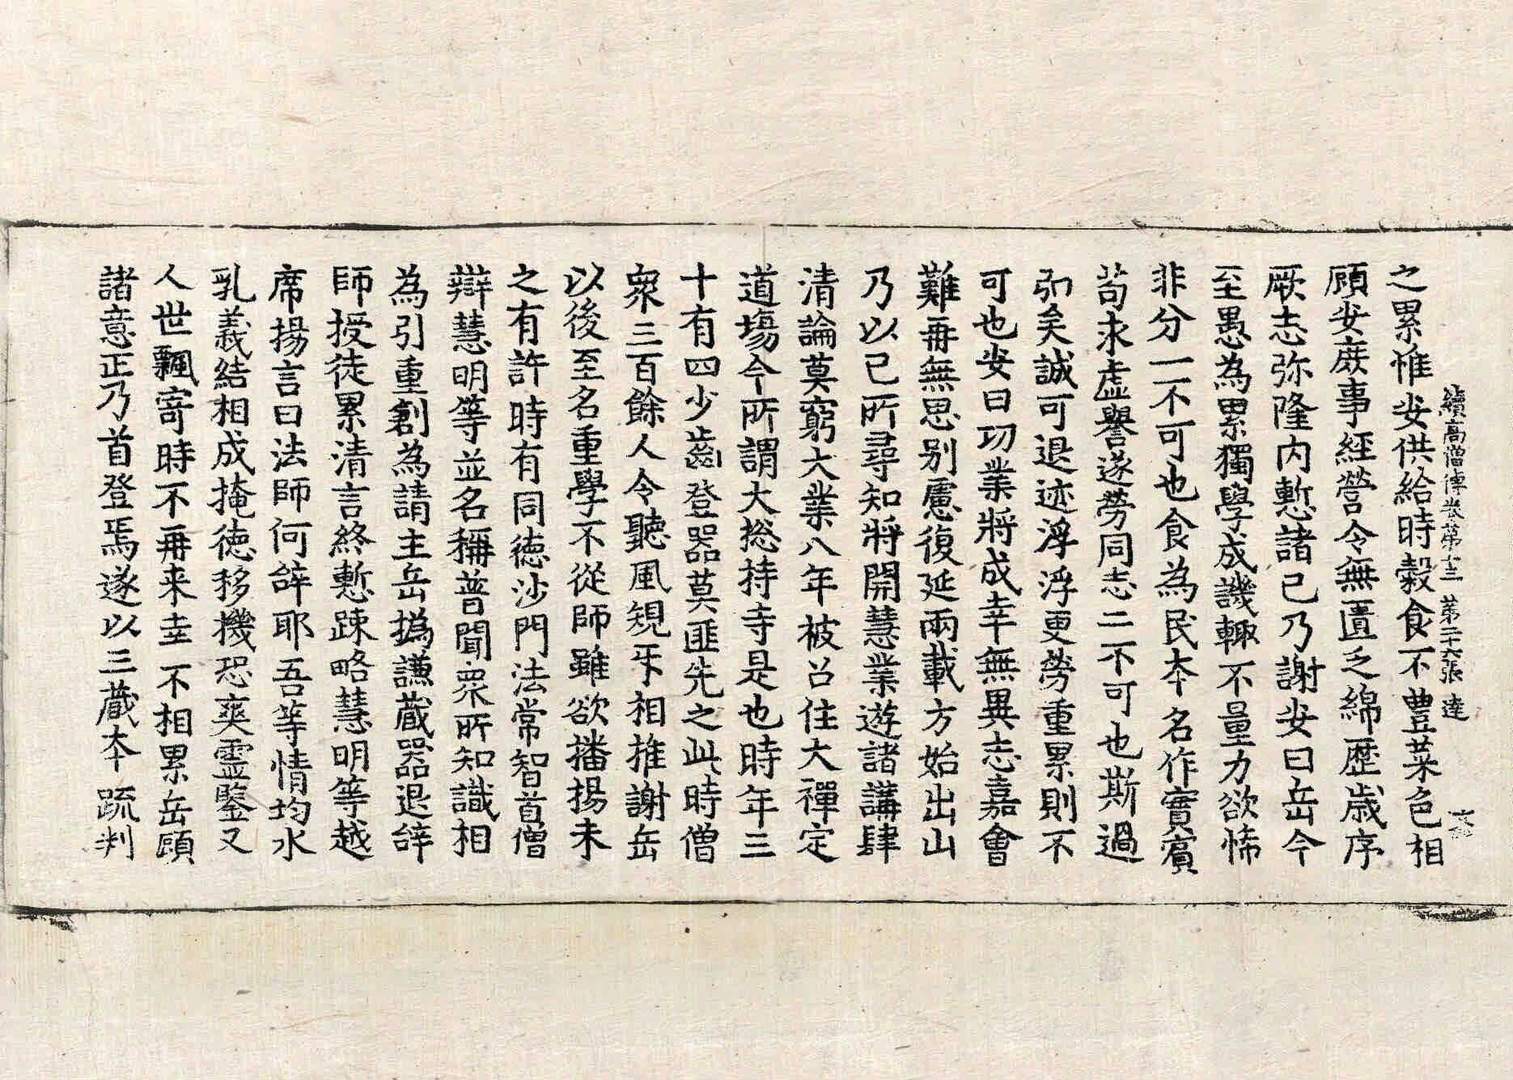 續高僧傳卷第十三 第二十六張 達
之累惟安供給時穀食不豊菜色相
顧安庶事經營令無匱乏綿歷歳序
厥志弥隆内慙諸已乃謝安曰岳今
至愚為累獨學成譏輙不量力欲怖
非分一不可也食為民夲名作實賔
苟求虚譽遂勞同志二不可也斯過
弥矣誠可退迹浮浮更勞重累則不
可也安曰功業將成幸無異志嘉會
難再無思别慮復延兩載方始出山
乃以己所尋知將開慧業遊諸講肆
清論莫窮大業八年被召住大禪定
道塲今所謂大緫持寺是也時年三
十有四少齒登器莫匪先之此時僧
衆三百餘人令聽風䂓㸦相推謝岳
以後至名重學不從師雖欲播揚未
之有許時有同徳沙門法常智首僧
辯慧明等並名稱普聞衆所知識相
為引重創為請主岳撝謙藏器退辝
師授徒累清言終慙踈略慧明等越
席揚言曰法師何辝耶吾等情均水
乳義結相成掩徳移機恐爽靈鑒又
人世飄寄時不再来幸不相累岳顧
諸意正乃首登焉遂以三藏夲䟽判